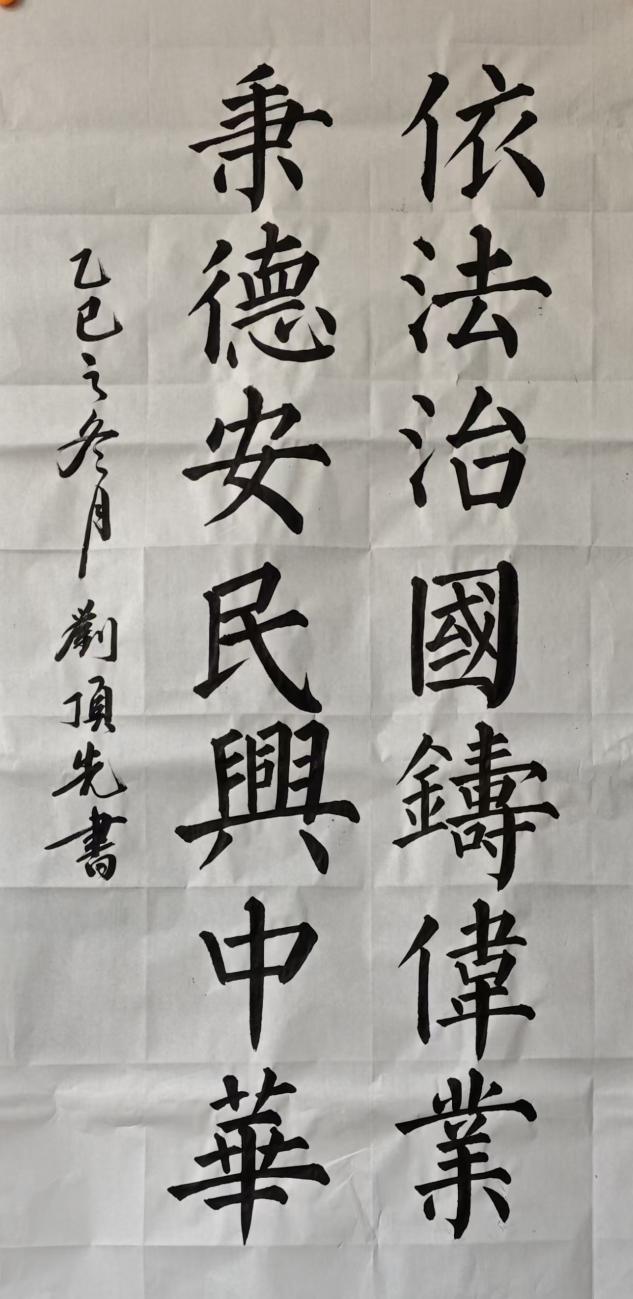 依法治國鑄偉業
秉德安民興中華
乙巳之冬月劉頂先書